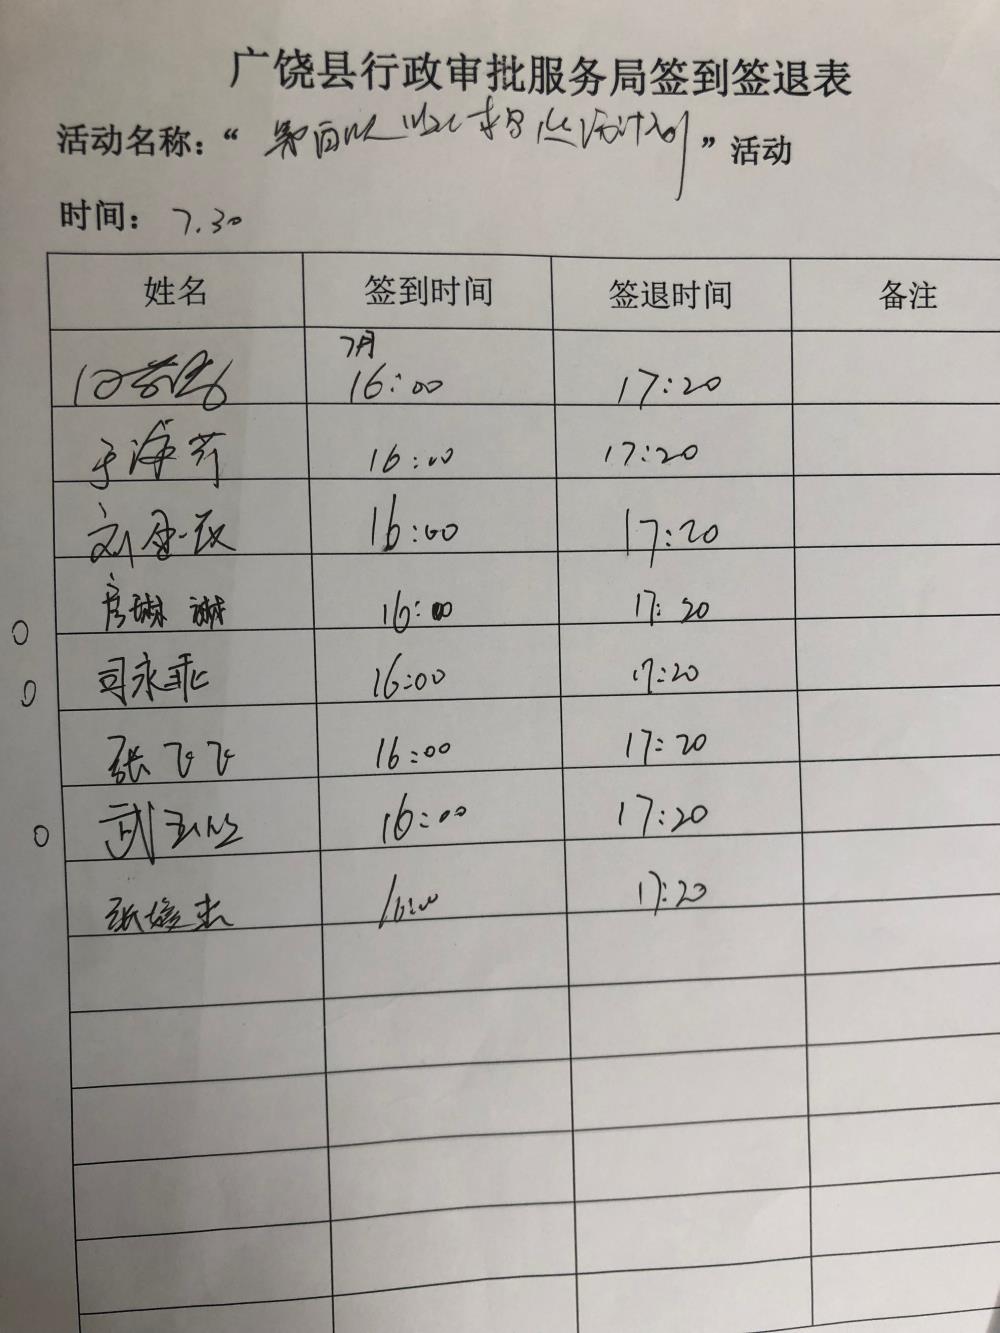 广饶县行政审批服务局签到签退表
活动名称：“ ”活动
时间：7.30
姓名 签到时间 签退时间 备注
7月
16:00 17:20
于海芹 16:00 17:20
刘 16:00 17:20
房琳琳 16:00 17:20
司永乖 16:00 17:20
张飞飞 16:00 17:20
武 16:00 17:20
张 16:00 17:20